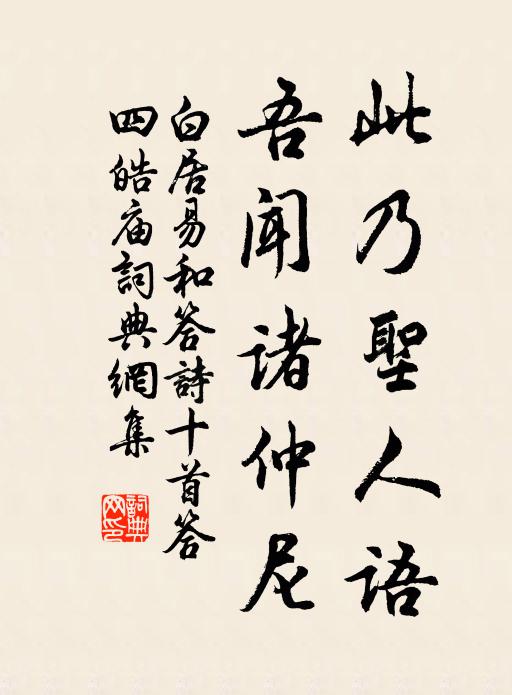 此乃聖人語
吾闻诸仲尼
白居易和答詩十首答
四皓庙詞典網集
詞典
网印